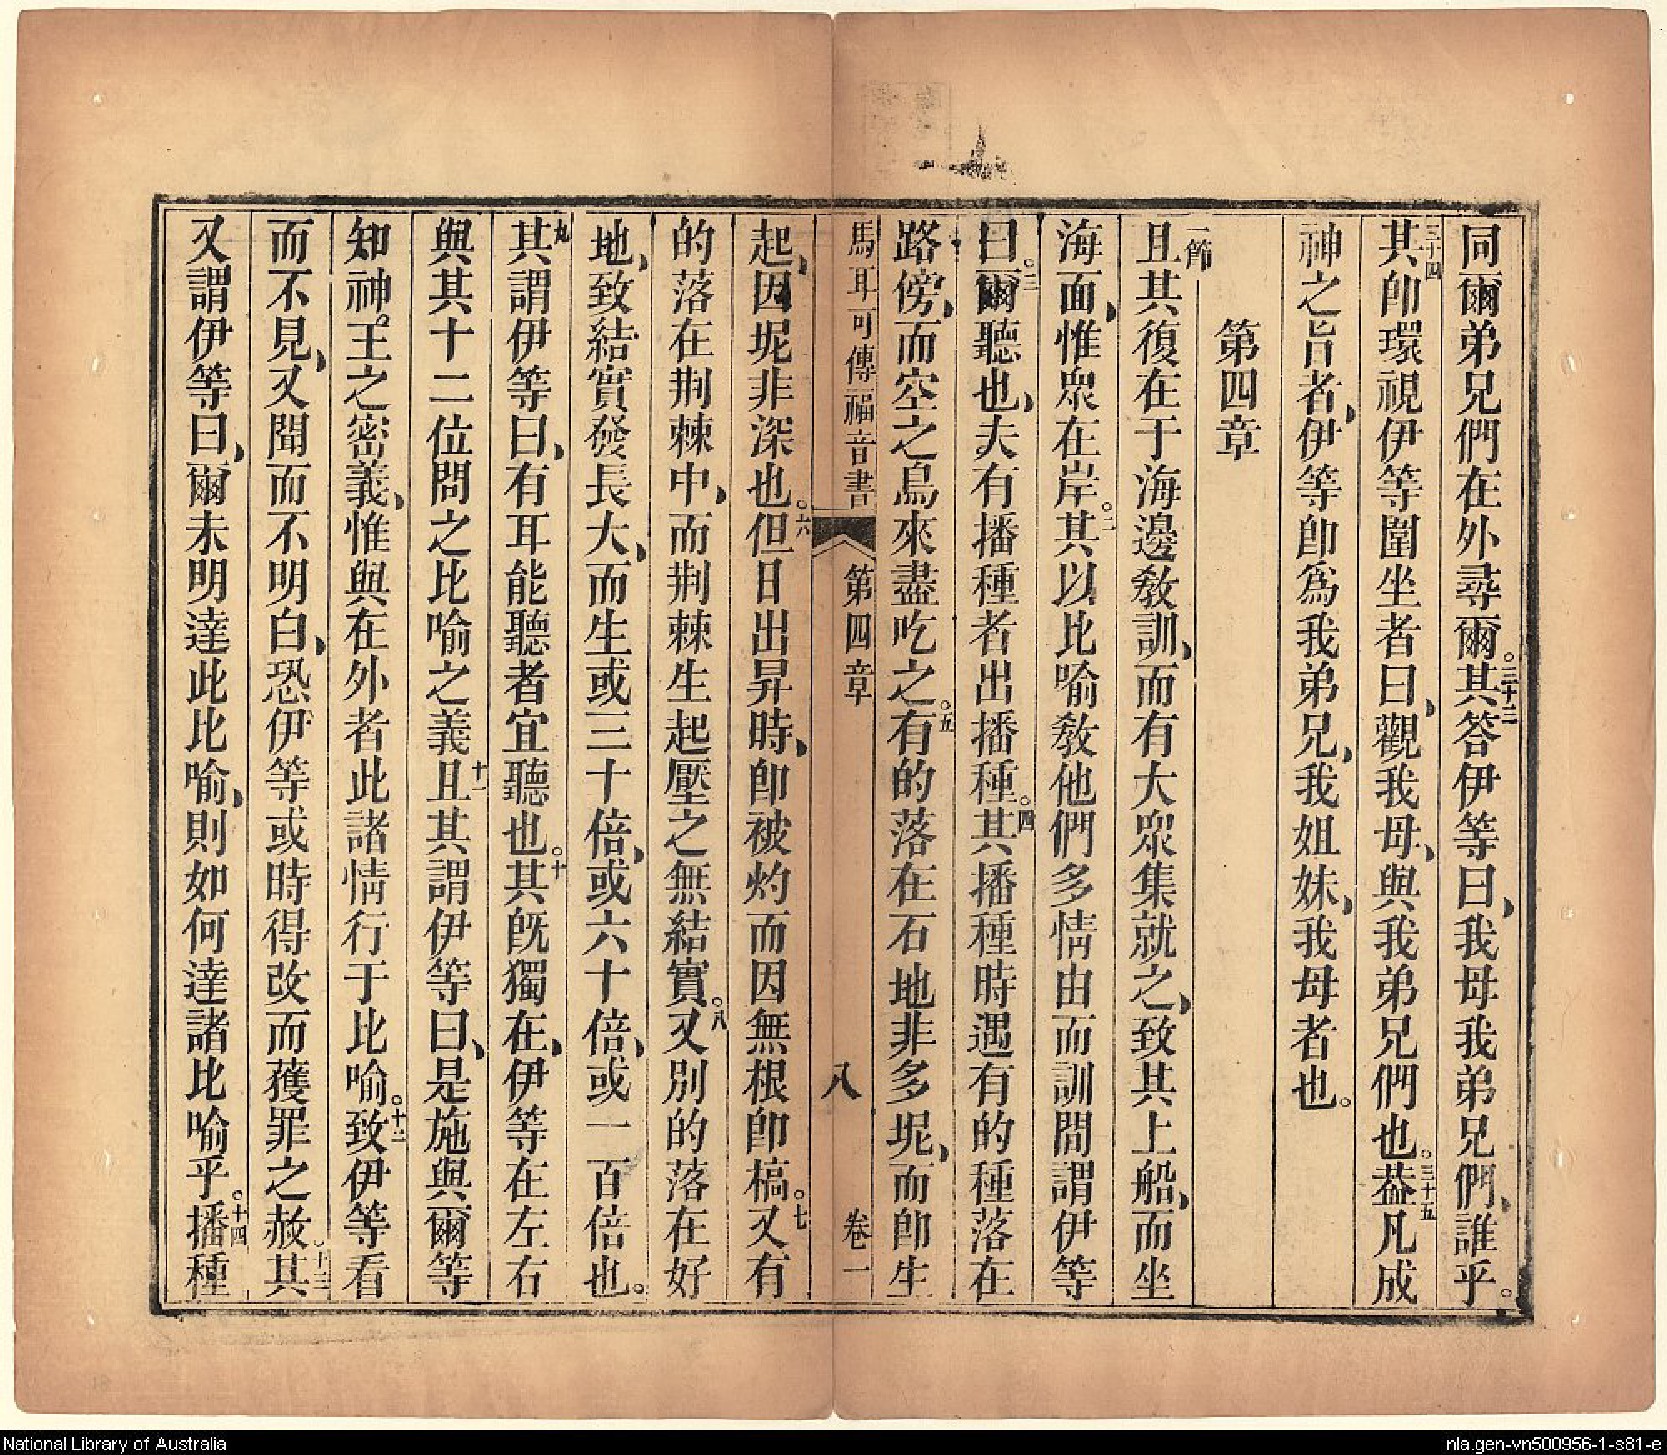 同爾弟兄們在外尋爾。三十三其答伊等曰、我母我弟兄們、誰乎。
三十四其卽環視伊等圍坐者曰、觀我母、與我弟兄們也。三十五葢凡成
神之旨者、伊等卽爲我弟兄、我姐妹、我母者也。
第四章
一節且其復在于海邊敎訓、而有大眾集就之、致其上船、而坐
海面、惟眾在岸。二其以比喻敎他們多情由而訓問謂伊等
曰。三爾聽也、夫有播種者出播種。四其播種時遇有的種落在
路傍、而空之鳥來盡吃之。五有的落在石地非多坭、而卽生
馬耳可傳福音書 第四章 八 卷一
起、因坭非深也。六但日出昇時、卽被灼而因無根卽槁。七又有
的落在荆棘中、而荆棘生起壓之無結實。八又別的落在好
地、致結實發長大、而生或三十倍、或六十倍、或一百倍也。
九其謂伊等曰、有耳能聽者宜聽也。十其旣獨在、伊等在左右
與其十二位問之比喻之義十一且其謂伊等曰、是施與爾等
知神王之密義、惟與在外者此諸情行于比喻。十二致伊等看
而不見、又聞而不明白、恐伊等或時得改而獲罪之赦。十三其
又謂伊等曰、爾未明達此比喻、則如何達諸比喻乎。十四播種
National Library of Australia
nla.gen-vn500956-1-s81-e